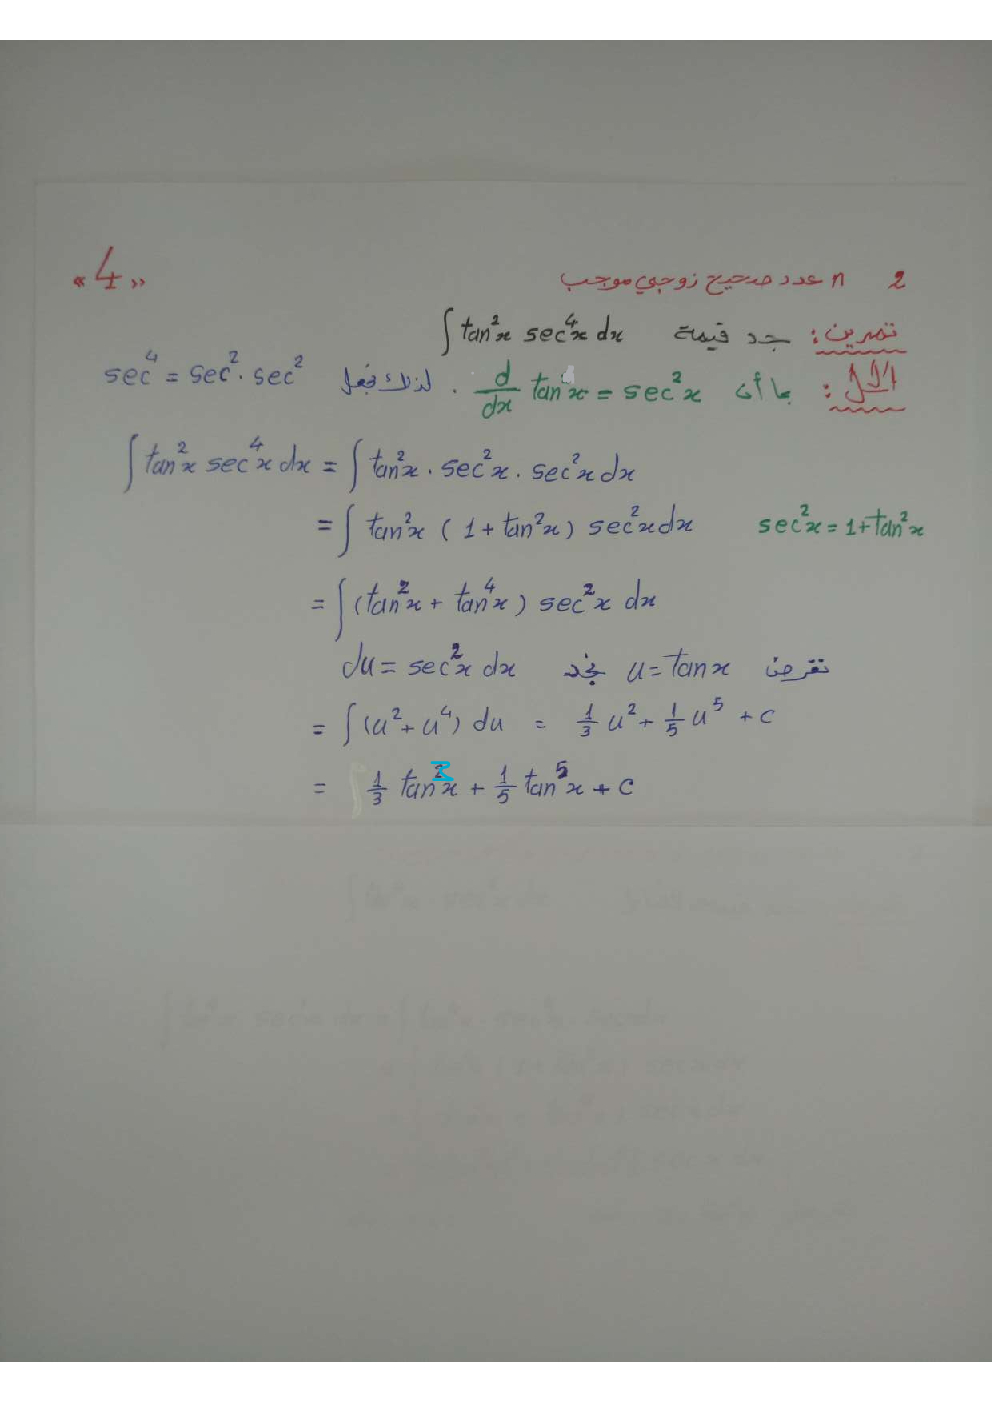 2 n عدد صحيح زوجي موجب «4»
تمرين: جد قيمة ∫ tan²x sec⁴x dx
الحل: بما أن d/dx tan x = sec²x . لذلك نجعل sec⁴ = sec² . sec²
∫ tan²x sec⁴x dx = ∫ tan²x . sec²x . sec²x dx
= ∫ tan²x (1 + tan²x) sec²x dx sec²x = 1 + tan²x
= ∫ (tan²x + tan⁴x) sec²x dx
نفرض u = tan x نجد du = sec²x dx
= ∫ (u² + u⁴) du = 1/3 u² + 1/5 u⁵ + c
= 1/3 tan³x + 1/5 tan⁵x + c